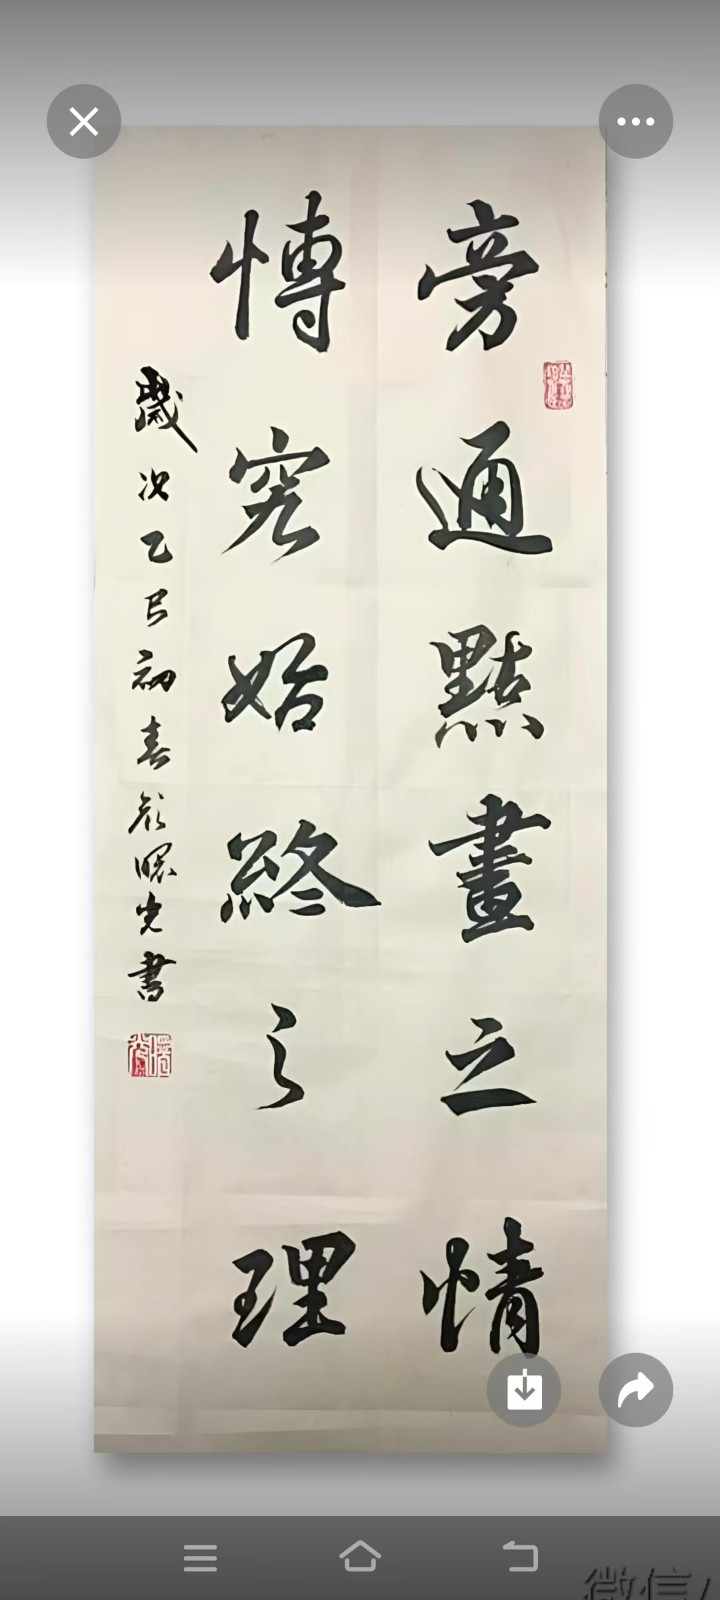 旁通點畫之情
愽究始終之理
歲次乙巳初春曙光書
微信